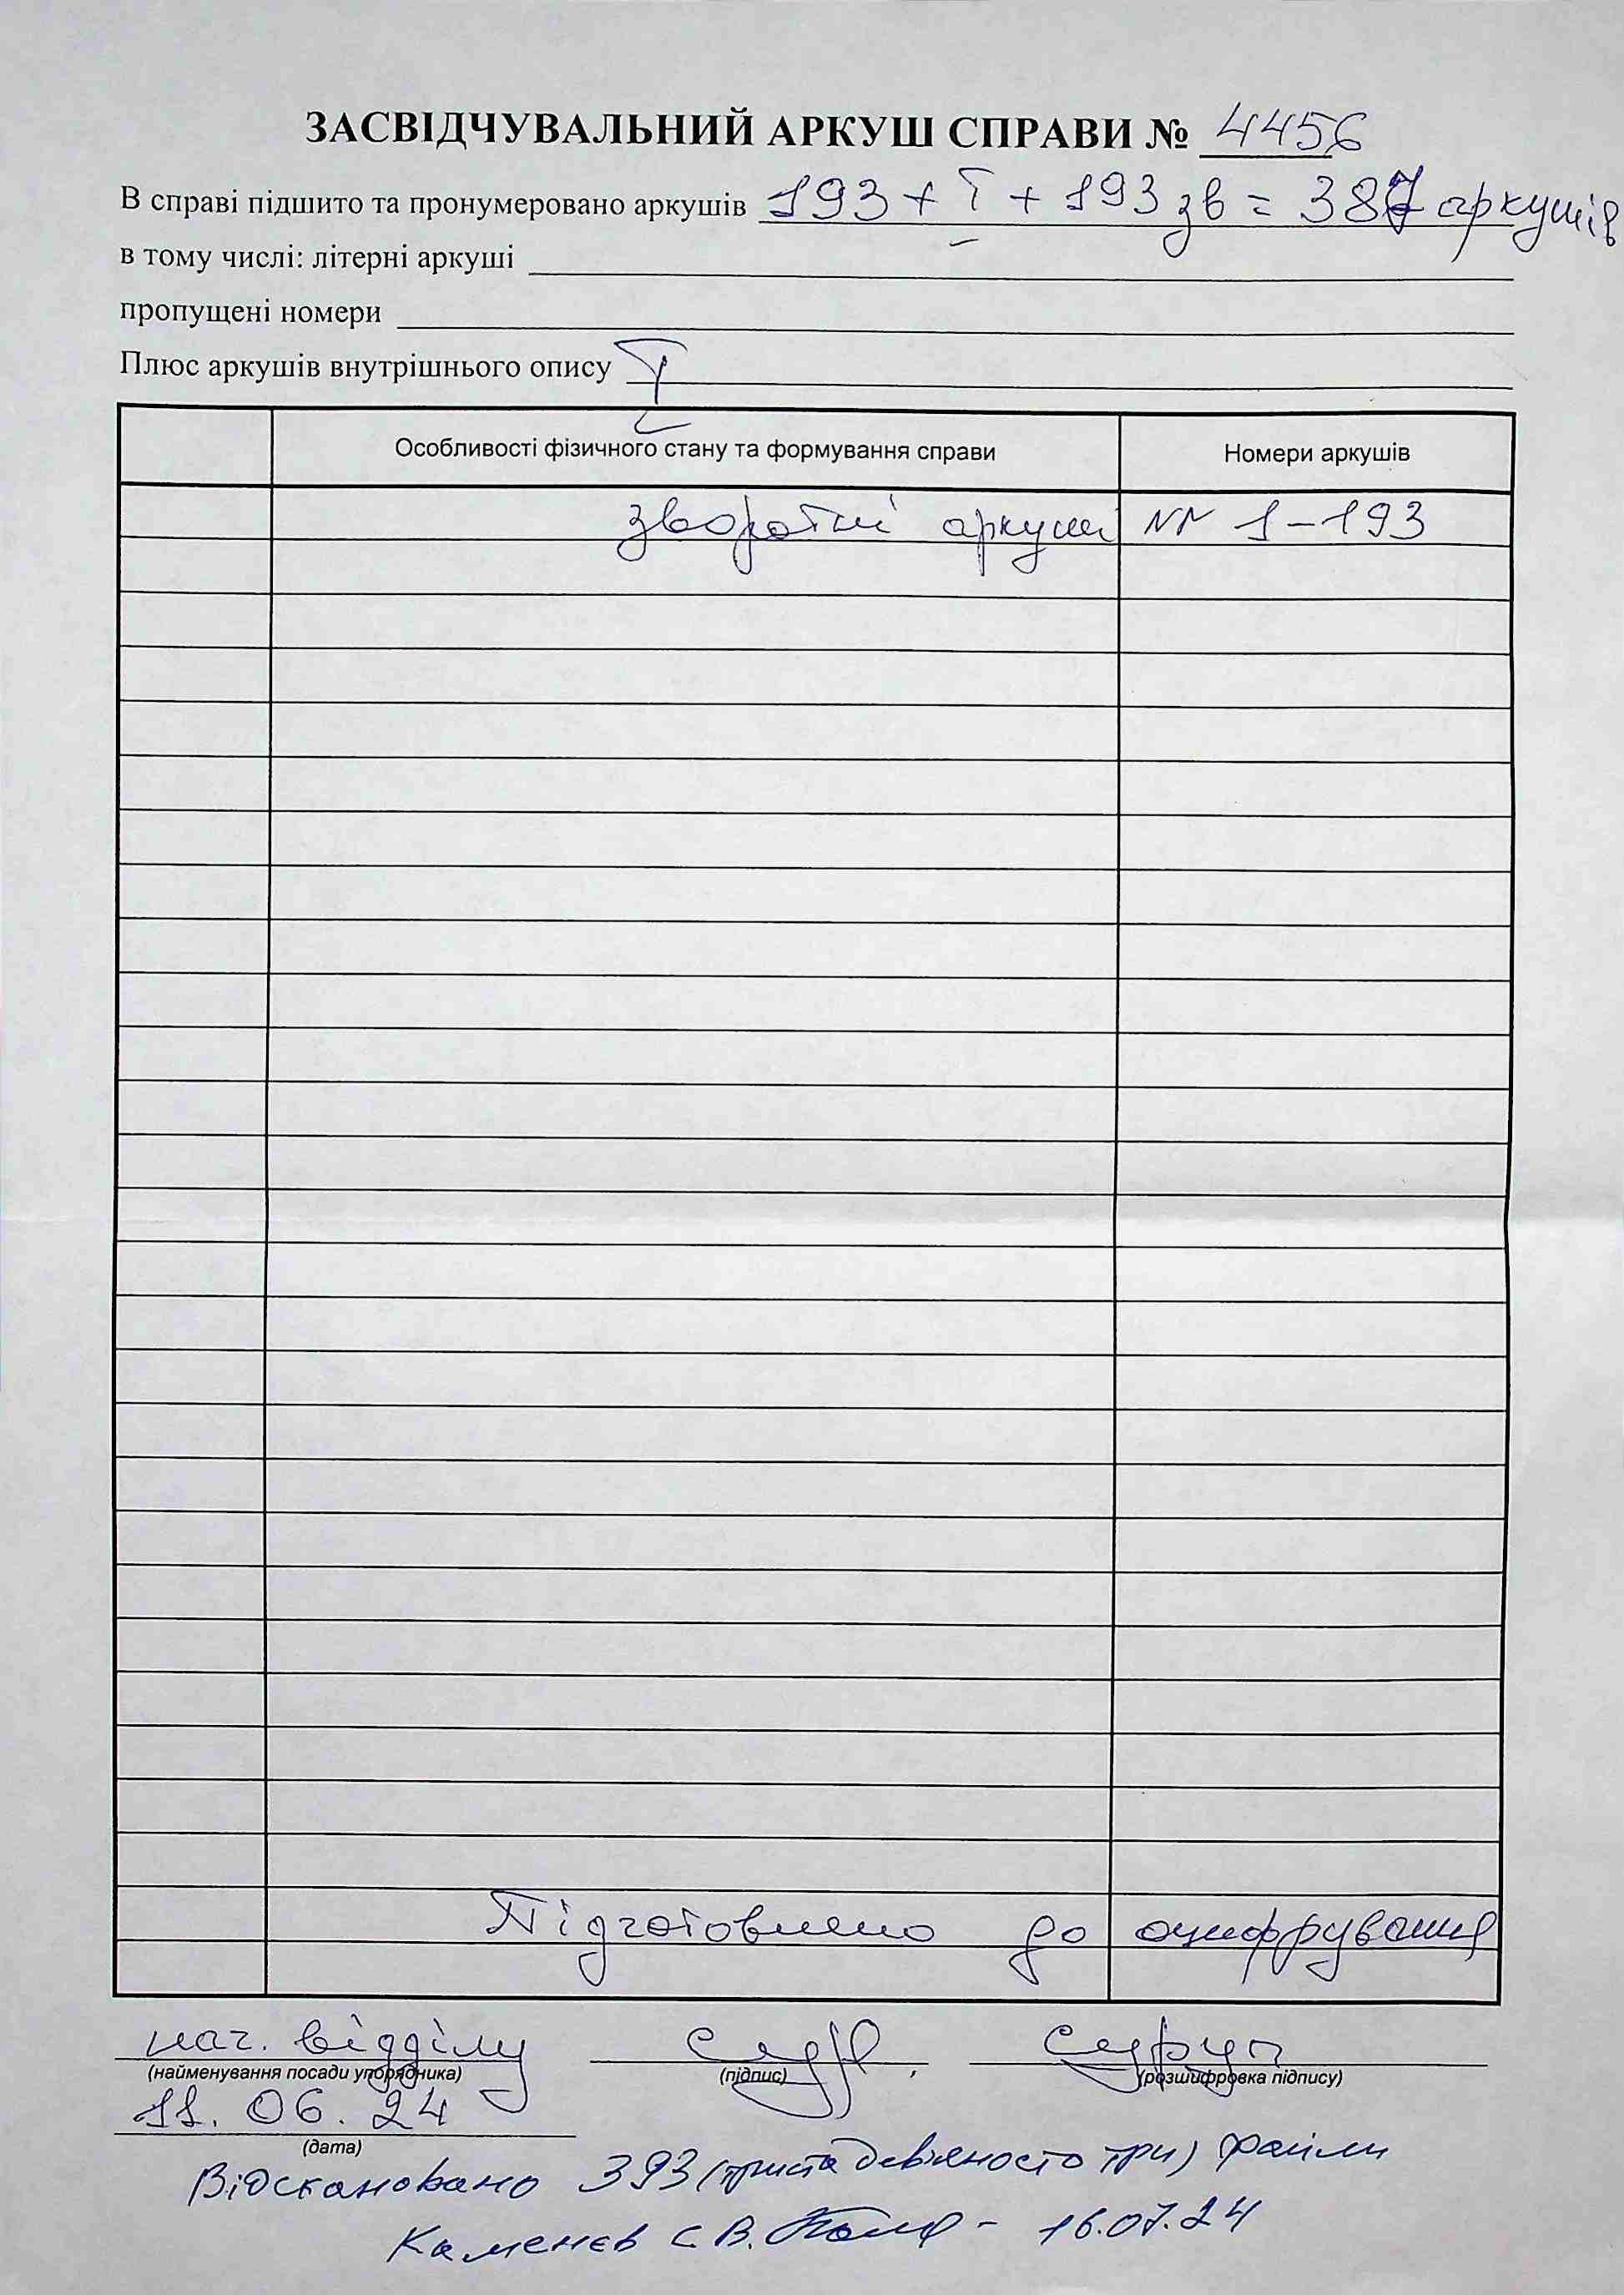 ЗАСВІДЧУВАЛЬНИЙ АРКУШ СПРАВИ № 4456
В справі підшито та пронумеровано аркушів 193 + I + 193 зв = 387 аркушів
в тому числі: літерні аркуші
пропущені номери
Плюс аркушів внутрішнього опису I
Особливості фізичного стану та формування справи Номери аркушів
зворотні аркуші NN 1-193
Підготовлено до оцифрування
нач. відділу
(найменування посади упорядника) (підпис) (розшифровка підпису)
11. 06. 24
(дата)
Відскановано 393 (триста девяносто три) файли
Каменєв С.В. - 16.07.24